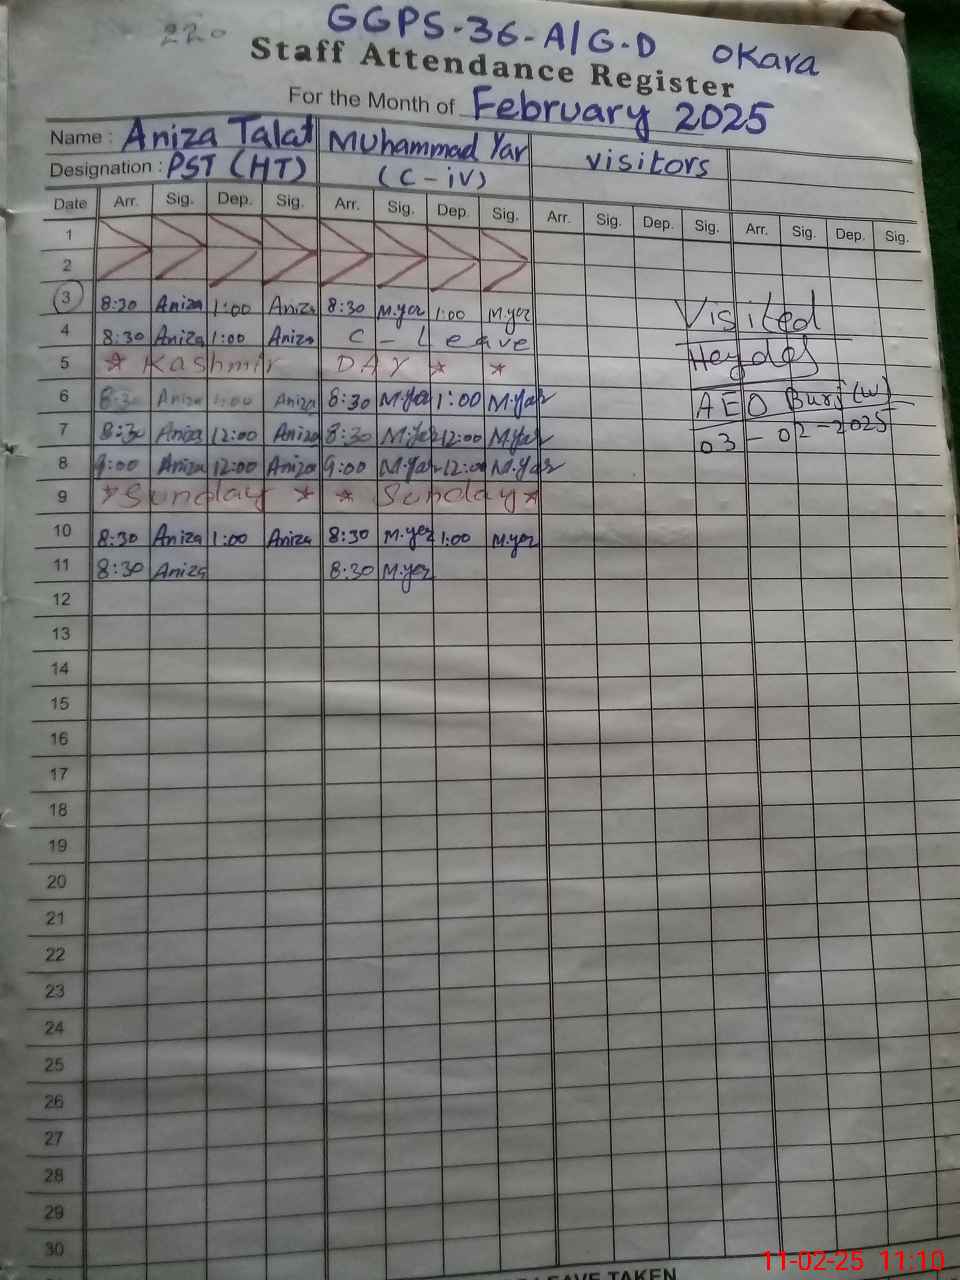 220
GGPS-36-A/G-D OKara
Staff Attendance Register
For the Month of February 2025
Name : Aniza Talat Muhammad Yar visitors
Designation : PST (HT) (C-iv)
Date Arr. Sig. Dep. Sig. Arr. Sig. Dep. Sig. Arr. Sig. Dep. Sig. Arr. Sig. Dep. Sig.
1
2
3 8:30 Aniza 1:00 Aniza 8:30 M.yar 1:00 M.yar
4 8:30 Aniza 1:00 Aniza C - Leave
5 * Kashmir DAY * *
6 8:30 Aniza 1:00 Aniza 8:30 M.Yar 1:00 M.Yar
7 8:30 Aniza 12:00 Aniza 8:30 M.Yar 12:00 M.Yar
8 9:00 Aniza 12:00 Aniza 9:00 M.Yar 12:00 M.Yar
9 * Sunday * * Sunday *
10 8:30 Aniza 1:00 Aniza 8:30 M.yar 1:00 M.yar
11 8:30 Aniza 8:30 M.yar
12
13
14
15
16
17
18
19
20
21
22
23
24
25
26
27
28
29
30
Visited
AEO Burj (W)
03-02-2025
LEAVE TAKEN
11-02-25 11:10